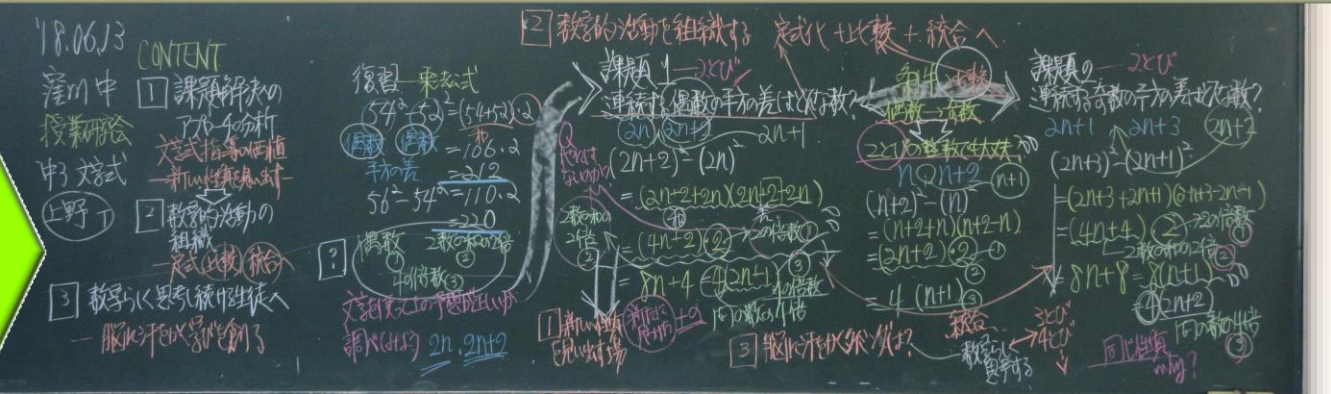 '18.06.13
CONTENT
窪川中
授業研究会
中3 文字式
上野T
1 課題解決への
アプローチの分析
文字式指導の価値
2 数学的活動の
組織
定式 比較 統合へ
3 数学らしく思考し続ける生徒へ
脳に汗をかく学びを創る
復習 乗法公式
54²-52²=(54+52)・2
偶数 偶数
=106・2
平方の差
=212
56²-54²=110・2
=220
?
偶数①
2数の和の2倍②
4の倍数③
調べてみよう 2n, 2n+2
2 数学的活動を組織する 定式化+比較+統合へ
課題1 2とび
連続する偶数の平方の差はどんな数?
2n 2n+2 2n+1
(2n+2)²-(2n)²
=(2n+2+2n)(2n+2-2n)
=(4n+2)・2
2数の和の2倍②
2の倍数①
=8n+4=4(2n+1)
4の倍数③
間の数の4倍
1 新しい性質を
見い出す場
3 脳に汗をかく
条件 比較
偶数→奇数
2とびの整数では大丈夫?
n n+2 n+1
(n+2)²-(n)²
=(n+2+n)(n+2-n)
=(2n+2)・2
=4(n+1)③
統合
数学らしく
思考する
2とび
4とび
課題2 2とび
連続する奇数の平方の差はどんな数?
2n+1 2n+3 2n+2
(2n+3)²-(2n+1)²
=(2n+3+2n+1)(2n+3-2n-1)
=(4n+4)・2
2の倍数①
2数の和の2倍②
=8n+8=8(n+1)
4(2n+2)
間の数の4倍
③
同じ性質
why?